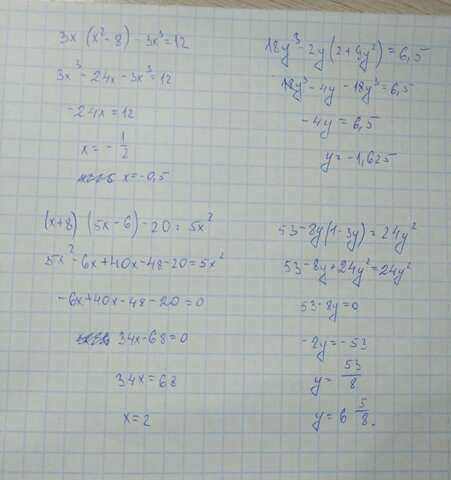 3x (x² - 8) - 3x³ = 12
3x³ - 24x - 3x³ = 12
-24x = 12
x = - 1/2
x = -0,5
18y³ - 2y (2 + 9y²) = 6,5
18y³ - 4y - 18y³ = 6,5
-4y = 6,5
y = -1,625
(x+8) (5x-6) - 20 = 5x²
5x² - 6x + 40x - 48 - 20 = 5x²
-6x + 40x - 48 - 20 = 0
34x - 68 = 0
34x = 68
x = 2
53 - 8y (1 - 3y) = 24y²
53 - 8y + 24y² = 24y²
53 - 8y = 0
-8y = -53
y = 53/8
y = 6 5/8.